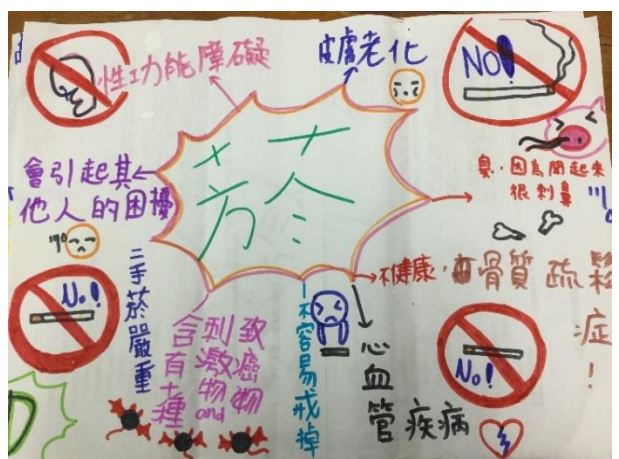 性功能障礙
皮膚老化
NO!
會引起其
他人的困擾
臭，因為聞起來
很刺鼻
不健康
骨質疏鬆
症！
No!
二手菸嚴重
含有十種
刺激物and
致癌物
不容易戒掉
心血
管疾病
No!